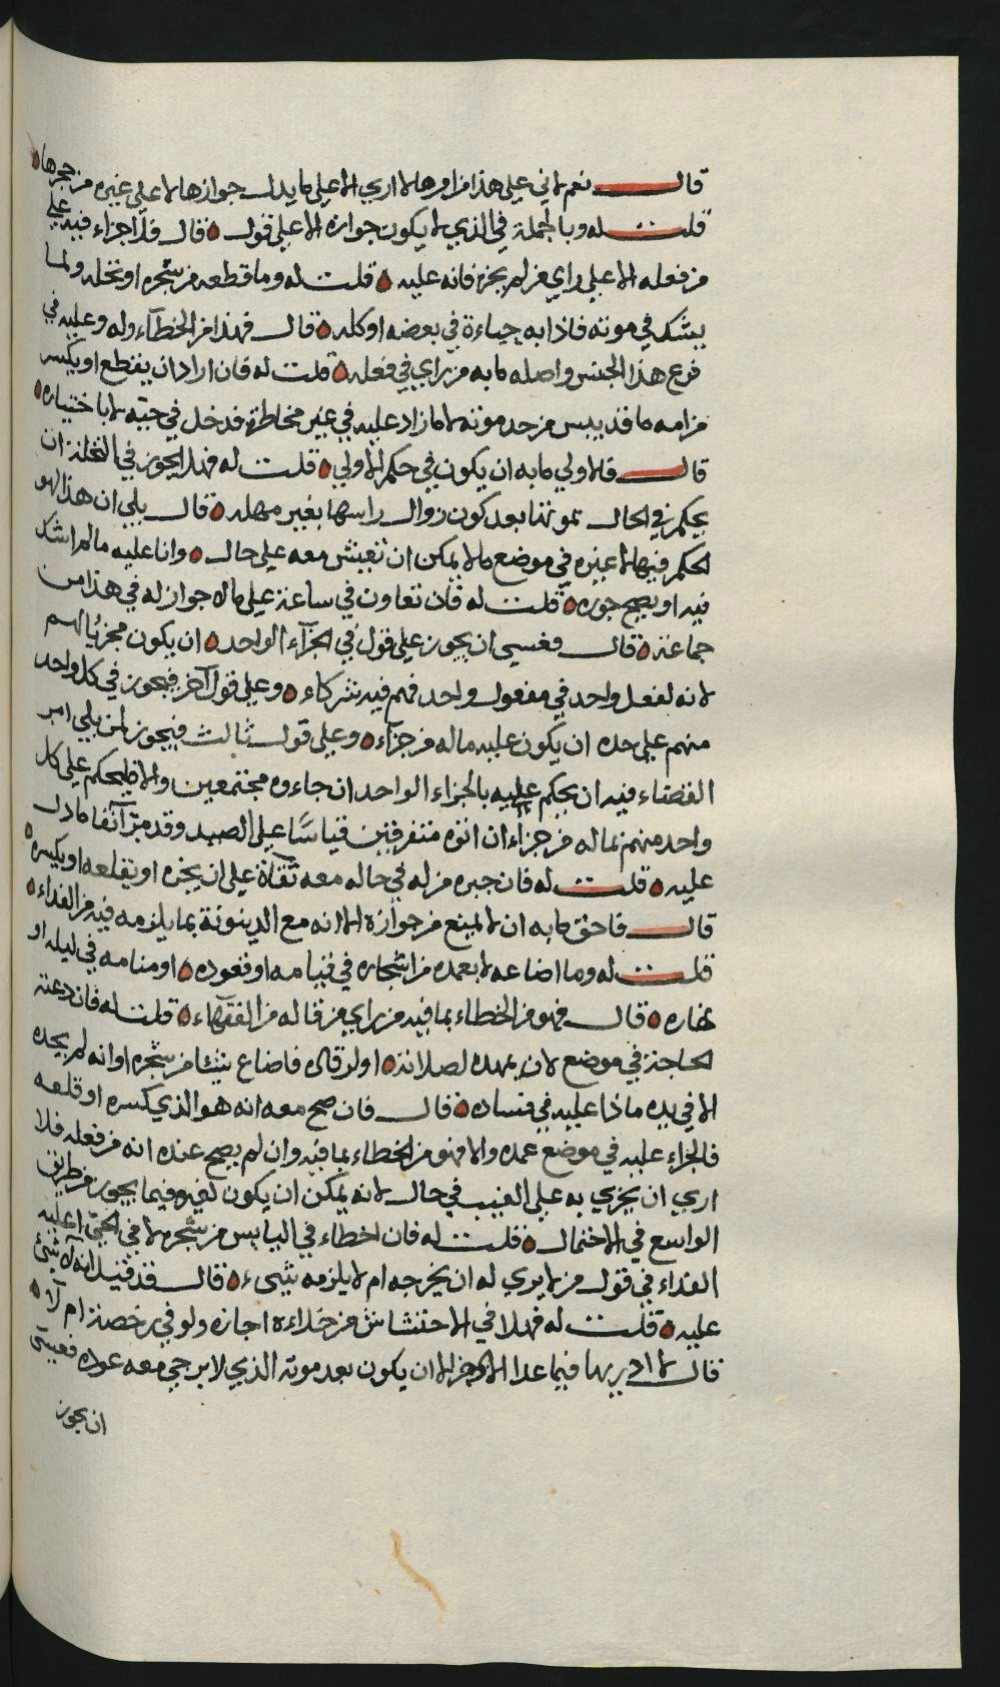 قال نعم لاني على هذا من امرها لا اري الا على ما يدل جوازها لا على غيره من حجرها
قلت له وبالجملة في الذي لا يكون جوازه الا على قول قال فلا جزاء فيه على
من فعله الا على راي من لم يجزه فانه عليه قلت له وما قطعه من شجره او نخله ولما
يشك في موته فاذا به حياءة في بعضه او كله قال فهذا من الخطاء وله وعليه في
فرع هذا الجنس واصله ما به من راي في فعله قلت له فان اراد ان يقطع او يكسر
من امه ما قد يبس من حد موته لا ما زاد عليه في غير مخاطرة فدخل في حيّه لا باختياره
قال فالاولى ما به ان يكون في حكم الاولي قلت له فهل يجوز في النخلة ان
يحكم في الحال بموتها بعد كون زوال راسها بغير مهله قال بلي ان هذا لهو
الحكم فيها لا غيره في موضع ما لا يمكن ان تعيش معه على حال وانا عليه ما لم اشك
فيه او يصح جوره قلت له فان تعاون في ساعة على ما لا جواز له في هذا من
جماعة قال فعسى ان يجوز على قول في الجزاء الواحد ان يكون مجزيًا لهم
لانه لفعل واحد في مفعول واحد فهم فيه شركاء وعلى قول آخر فيجوز في كل واحد
منهم على حده ان يكون عليه ماله من جزآء وعلى قول ثالث فيجوز لمن يلي امر
القضاء فيه ان يحكم عليه بالجزاء الواحد ان جاءوه مجتمعين والا فليحكم على كل
واحد منهم بما له من جزاء ان اتوه متفرقين قياسًا على الصيد وقد مرّ آنفا ما دل
عليه قلت له فان جبره من له في حاله معه تقاة على ان يجزه او يقلعه او يكسره
قال فاحق ما به ان لا يمنع من جوازه الا انه مع الدينونة بما يلزمه فيه من الفداء
قلت له وما اضاعه لا بعمده من اشجاره في قيامه او قعوده او منامه في ليله او
نهاره قال فهو من الخطاء بما فيه من راي من قاله من الفقهاء قلت له فان دعته
الحاجة في موضع لان يمهده لصلاته او لرقاده فاضاع شيئا من شجره او انه لم يجده
الا في يده ماذا عليه في فساده قال فان صح معه انه هو الذي كسره او قلعه
فالجزاء عليه في موضع عمده والا فهو من الخطاء بما فيه وان لم يصح عنده انه من فعله فلا
اري ان يجزي به على الغيب في حال لانه يمكن ان يكون لغيره فيما يجوز من طريق
الواسع في الاحتمال قلت له فان اخطاء في اليابس من شجره لا في الحيّ اعليه
الفداء في قول من لا يري له ان يخرجه ام لا يلزمه شيء قال قد قيل انه لا شئ
عليه قلت له فهلا في الاحتشاش من خلاءه اجازه ولو في رخصة ام لا
قال لا ادريها فيما عدا الاذخر الا ان يكون بعد موته الذي لا يرجي معه عوده فعسى
ان يجوز